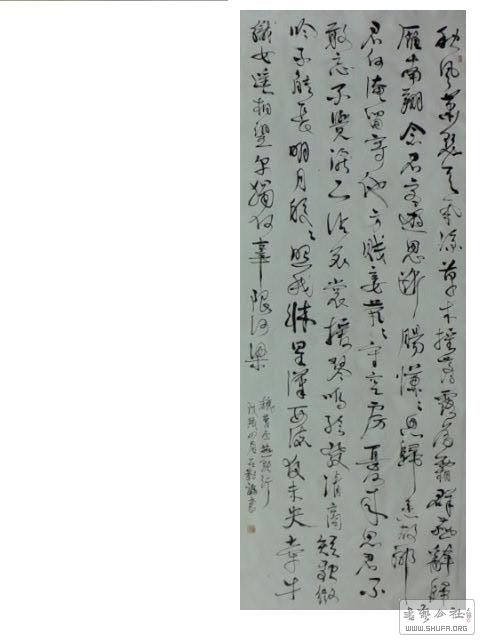 秋風蕭瑟天氣涼草木摇落露為霜群燕辭歸
雁南翔念君客遊思断腸慊々思歸戀故鄉
君何淹留寄他方賤妾茕々守空房憂来思君不
敢忘不覺淚下沾衣裳援琴鳴弦發清商短歌微
吟不能長明月皎々照我牀星漢西流夜未央牵牛
織女遥相望尔獨何辜限河梁
魏曹丕燕歌行
書藝公社
WWW.SHUFA.ORG